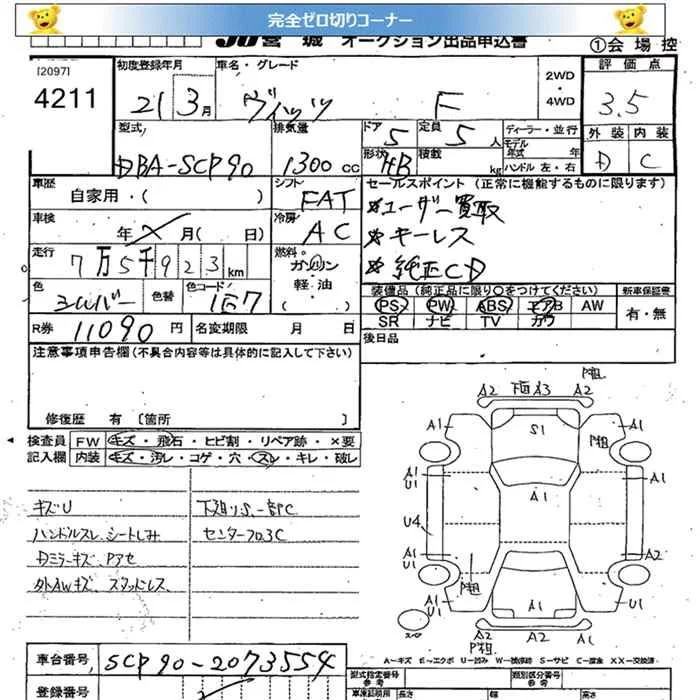 完全ゼロ切りコーナー
JU宮城 オークション出品申込書
①会場控
[2097]
4211
初度登録年月
21 3月
車名・グレード
ヴィッツ F
2WD
・
4WD
評価点
3.5
外装 内装
D C
型式
DBA-SCP90
排気量
1300cc
ドア 5
定員 5人
形状 HB
積載 kg
ディーラー・並行
モデル年式 年
ハンドル 左・右
車歴
自家用・( )
シフト
FAT
車検
年 月( 日)
冷房
AC
走行
7万5千923km
燃料
ガソリン
軽・油
( )
色
シルバー
色替
色コード
1E7
R券 11090円
名変期限 月 日
セールスポイント(正常に機能するものに限ります)
ユーザー買取
キーレス
純正CD
装備品(純正品に限り○をつけてください)
新車保証書
PS PW ABS エアB AW
SR ナビ TV カワ
有・無
後日品
注意事項申告欄(不具合内容等は具体的に記入して下さい)
修復歴 有 [箇所 ]
検査員
記入欄
FW キズ・飛石・ヒビ割・リペア跡・×要
内装 キズ・汚レ・コゲ・穴・スレ・キレ・破レ
キズU
下廻りS.一部C
ハンドルスレ、シートしみ
センターフロ3C
Dミラーキズ、Pアセ
外AWキズ、スタッドレス
A2 下回A3 A2 P粗
A1 S1 P粗 A1
A1
U1
A1
A1
U1
U4
A1
U1
A2
P粗
A1 A1 U1
A2 A2
P粗
A～キズ E～エクボ U～凹み W～補修跡 S～サビ C～腐食 XX～交換済
車台番号 SCP90-2073554
登録番号
型式指定番号
類別区分番号
参考
参考
車庫証明用 長さ 幅 高さ